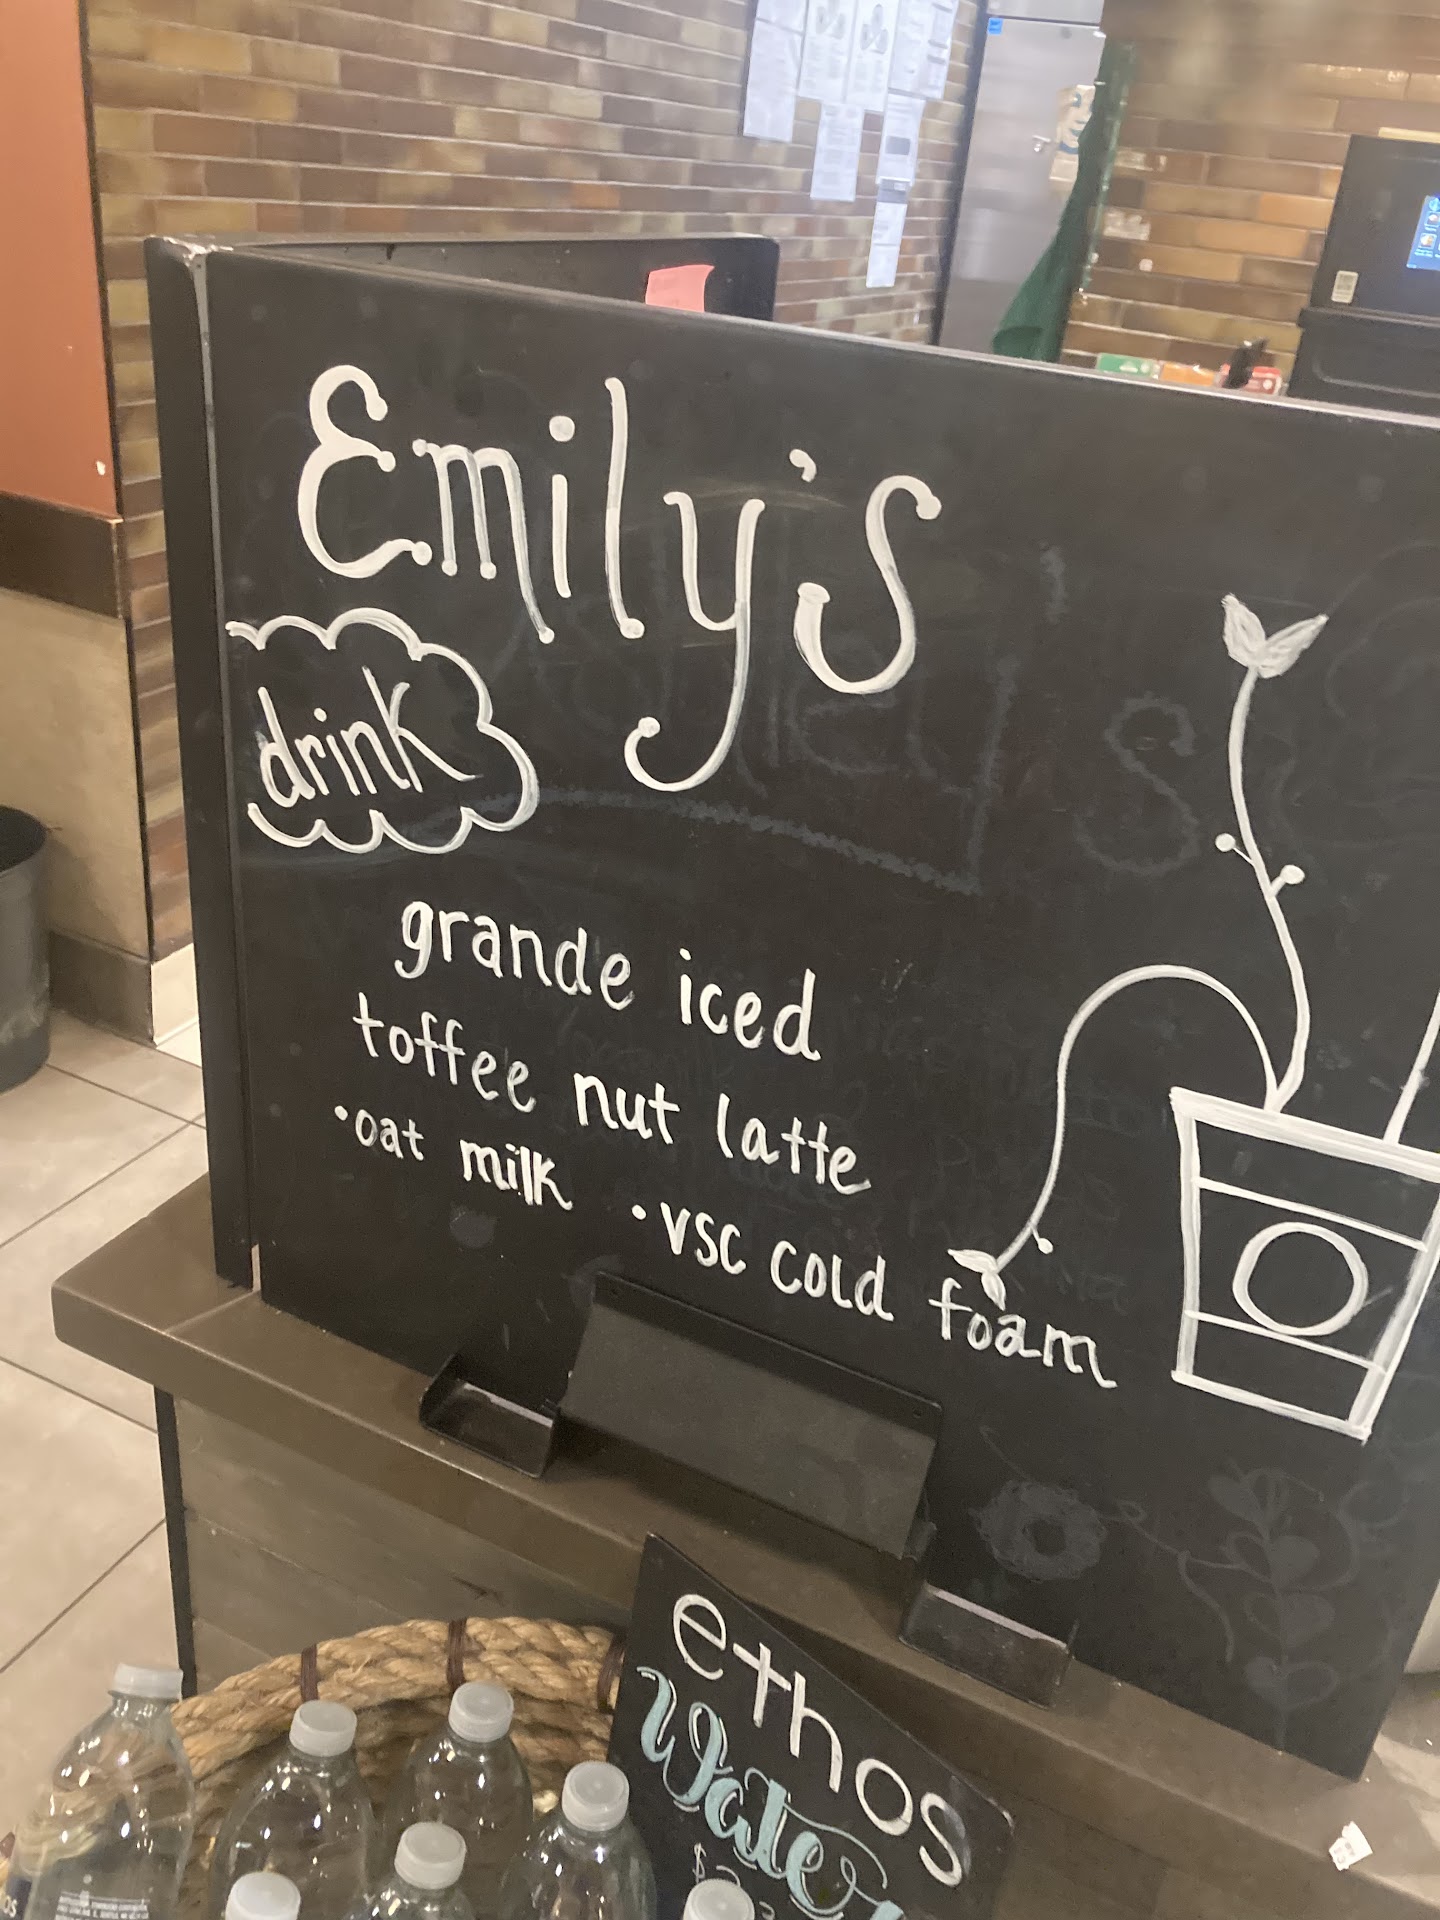 Emily's
drink
grande iced
toffee nut latte
•oat milk •vsc cold foam
ethos
Water